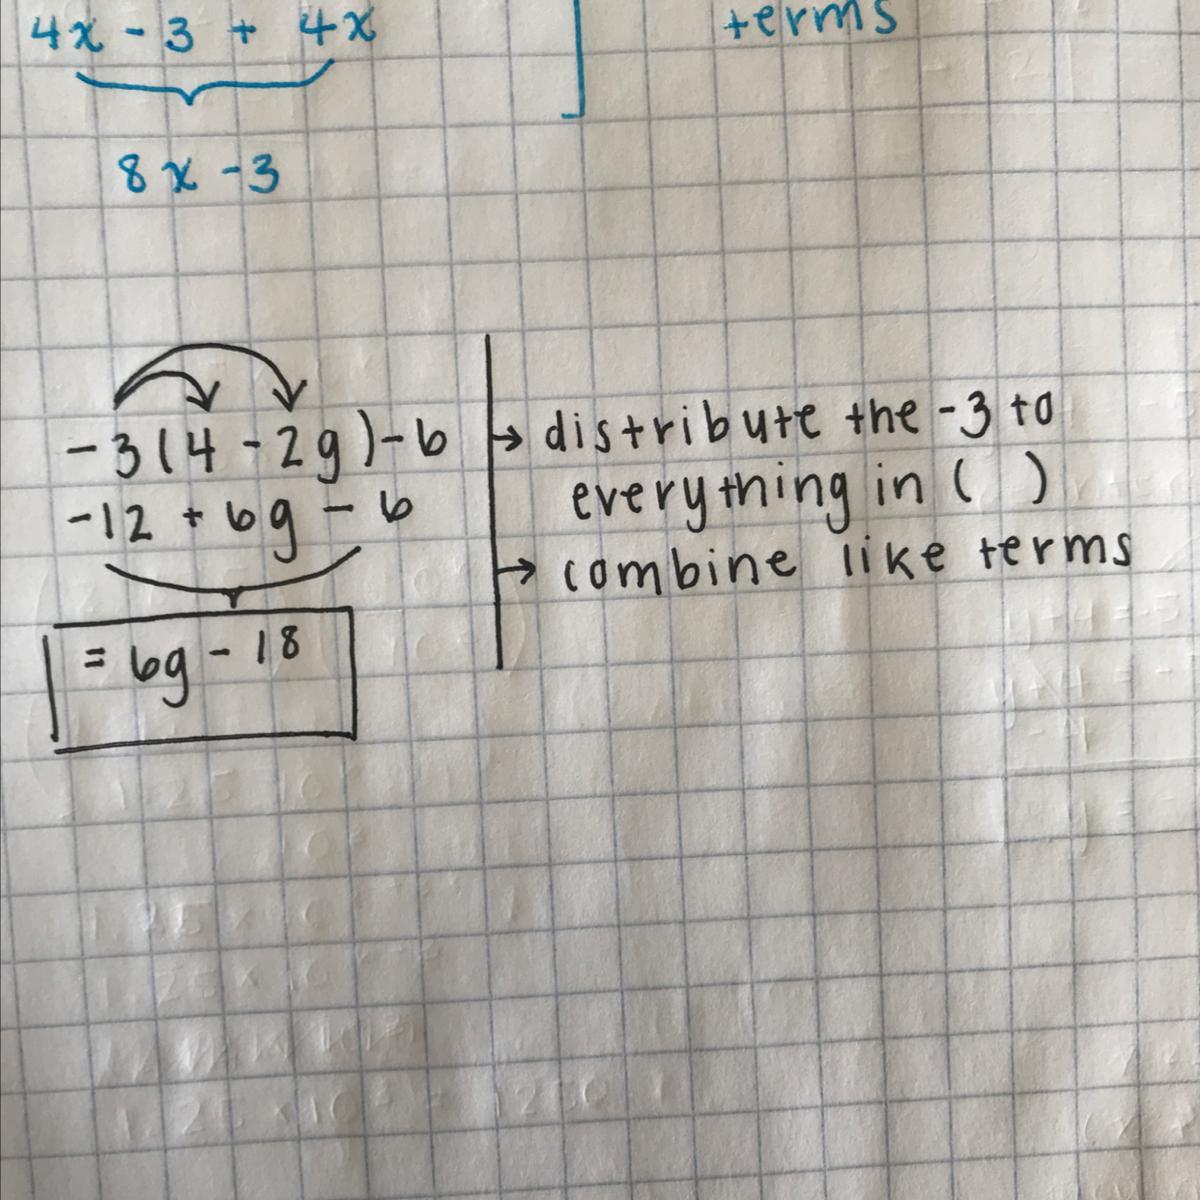 4x - 3 + 4x
terms
8x - 3
-3(4 - 2g) - 6
-12 + 6g - 6
= 6g - 18
→ distribute the -3 to
everything in ( )
→ combine like terms